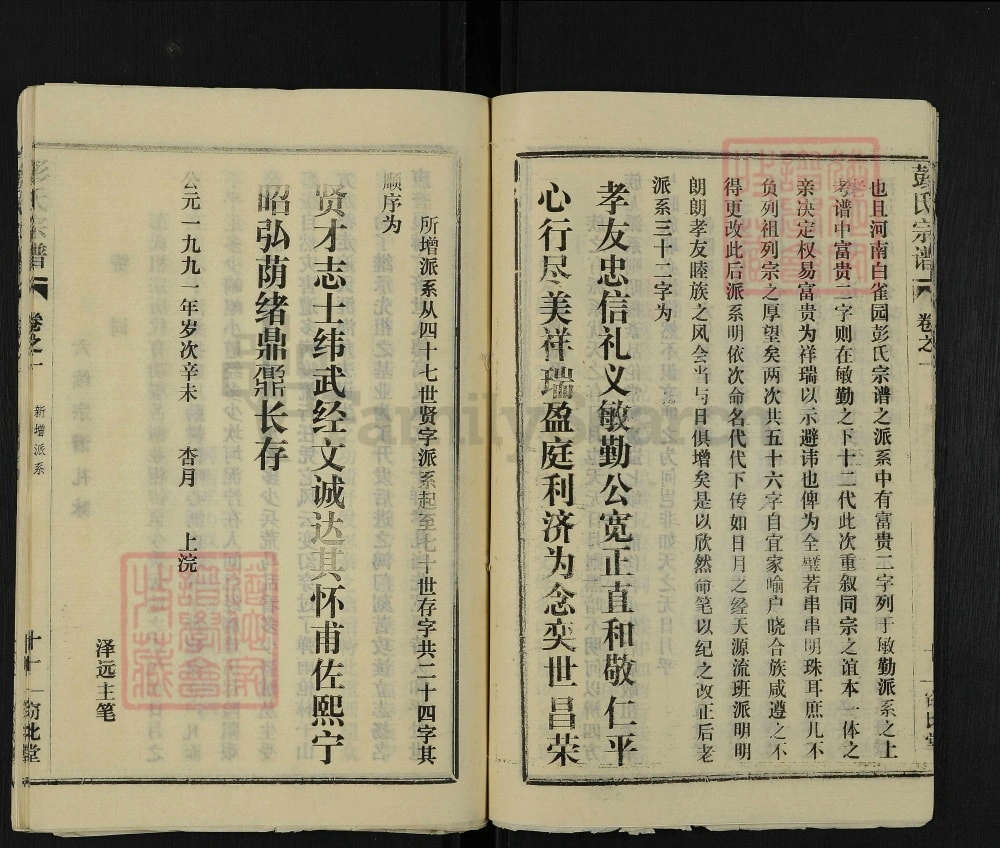 彭氏宗谱 卷之一
也且河南白雀园彭氏宗谱之派系中有富贵二字列于敏勤派系之上
考谱中富贵二字则在敏勤之下十二代此次重叙同宗之谊本一体之
亲决定权易富贵为祥瑞以示避讳也俾为全璧若串串明珠耳庶几不
负列祖列宗之厚望矣两次共五十六字自宜家喻户晓合族咸遵之不
得更改此后派系明依次命名代代下传如日月之经天源流班派明明
朗朗孝友睦族之风会当与日俱增矣是以欣然命笔以纪之改正后老
派系三十二字为
孝友忠信礼义敏勤公宽正直和敬仁平
心行尽美祥瑞盈庭利济为念奕世昌荣
所增派系从四十七世贤字派系起至七十世存字共二十四字其
顺序为
贤才志士纬武经文诚达其怀甫佐熙宁
昭弘荫绪鼎鼐长存
公元一九九一年岁次辛未 杏月 上浣
泽远主笔
彭氏宗谱 卷之一 新增派系
FamilySearch